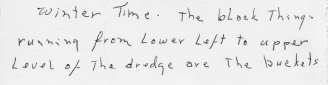 winter Time. The black Things
running from Lower Left to upper
Level of The dredge are The buckets